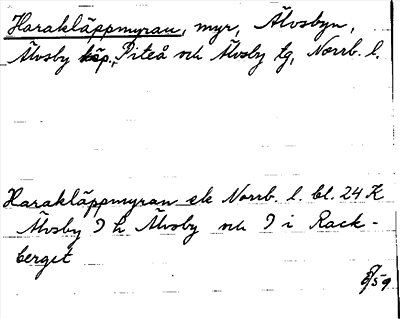 Harakläppmyran, myr, Älvsbyn,
Älvsby köp, Piteå och Älvsby tg, Norrb. l.
Harakläppmyran ek Norrb. l. bl. 24 K
Älvsby I h Älvsby och I i Rack-
berget
59